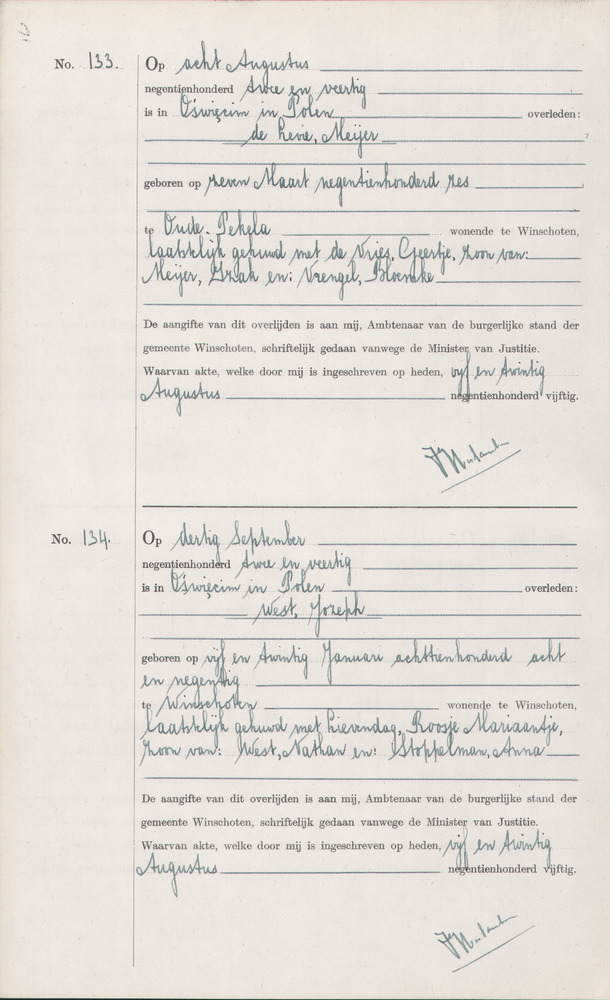 No. 133. Op acht Augustus
negentienhonderd twee en veertig
is in Oświęcim in Polen overleden:
de Levie, Meijer
geboren op zeven Maart negentienhonderd zes
te Oude. Pekela wonende te Winschoten,
laatstelijk gehuwd met de Vries, Geertje, zoon van:
Meijer, Izak en: Vrengel, Bloemke
De aangifte van dit overlijden is aan mij, Ambtenaar van de burgerlijke stand der
gemeente Winschoten, schriftelijk gedaan vanwege de Minister van Justitie.
Waarvan akte, welke door mij is ingeschreven op heden, vijf en twintig
Augustus negentienhonderd vijftig.
No. 134. Op dertig September
negentienhonderd twee en veertig
is in Oświęcim in Polen overleden:
West, Jozeph
geboren op vijf en twintig Januari achttienhonderd acht
en negentig
te Winschoten wonende te Winschoten,
laatstelijk gehuwd met Lievendag, Roosje Mariaantje,
zoon van: West, Nathan en: Stoppelman, Anna
De aangifte van dit overlijden is aan mij, Ambtenaar van de burgerlijke stand der
gemeente Winschoten, schriftelijk gedaan vanwege de Minister van Justitie.
Waarvan akte, welke door mij is ingeschreven op heden, vijf en twintig
Augustus negentienhonderd vijftig.